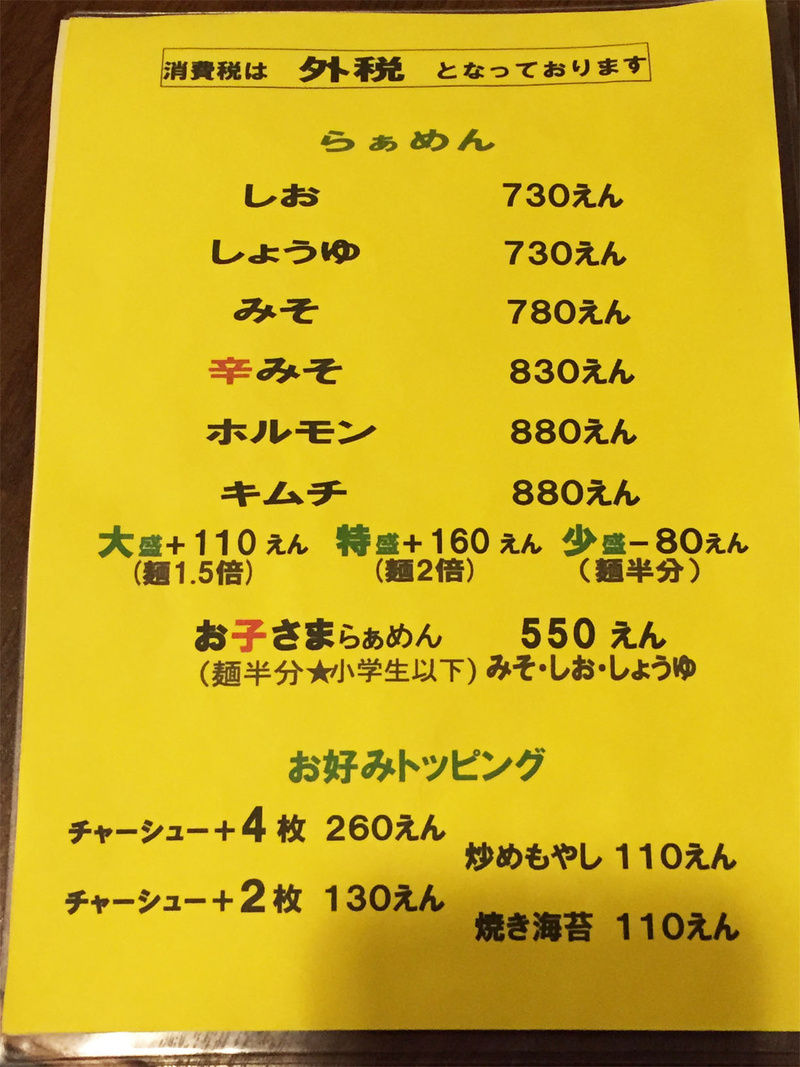 消費税は 外税 となっております
らぁめん
しお 730えん
しょうゆ 730えん
みそ 780えん
辛みそ 830えん
ホルモン 880えん
キムチ 880えん
大盛+110えん 特盛+160えん 少盛-80えん
(麺1.5倍) (麺2倍) (麺半分)
お子さまらぁめん 550えん
(麺半分★小学生以下) みそ・しお・しょうゆ
お好みトッピング
チャーシュー+4枚 260えん
炒めもやし 110えん
チャーシュー+2枚 130えん
焼き海苔 110えん